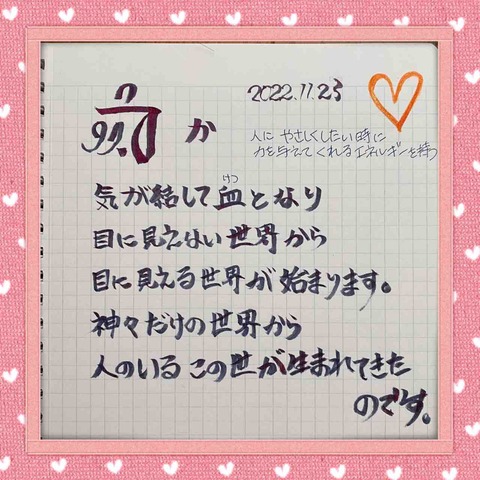 2022.11.23
か
人に やさしくしたい時に
力を与えてくれるエネルギーを持つ
気が結して血となり
けつ
目に見えない世界から
目に見える世界が始まります。
神々だけの世界から
人のいる この世が生まれてきた
のです。